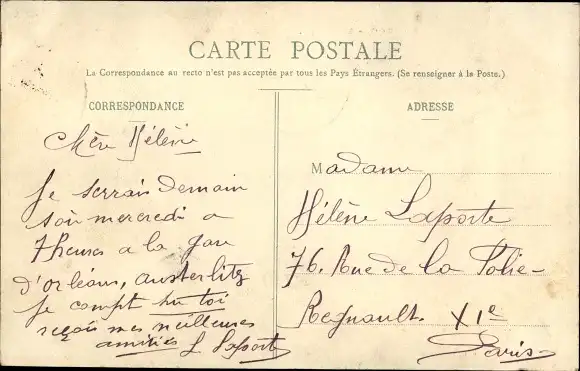 CARTE POSTALE
La Correspondance au recto n'est pas acceptée par tous les Pays Étrangers. (Se renseigner à la Poste.)
CORRESPONDANCE
Chère Hélène
Je serrais demain
soir mercredi a
7 heures a la gare
d'orléans, austerlitz
Je compt sur toi
reçois mes meilleures
amitiés L Laporte
ADRESSE
Madame
Hélène Laporte
76. Rue de la Folie-
Regnault. XIe
Paris-